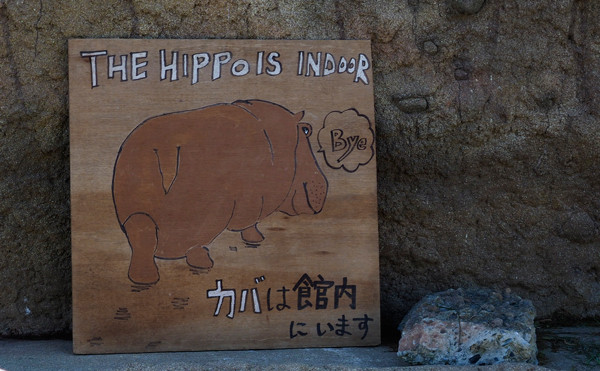 THE HIPPO IS INDOOR
Bye
カバは館内
にいます